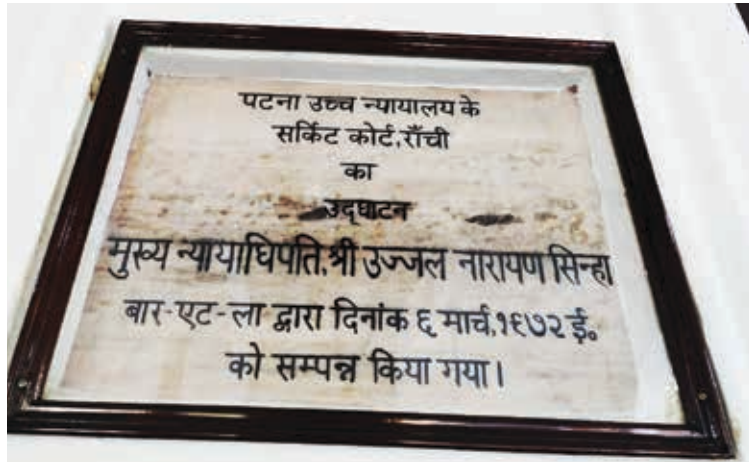 पटना उच्च न्यायालय के
सर्किट कोर्ट, राँची
का
उद्घाटन
मुख्य न्यायाधिपति, श्री उज्जल नारायण सिन्हा
बार-एट-ला द्वारा दिनांक ६ मार्च, १९७२ ई॰
को सम्पन्न किया गया।